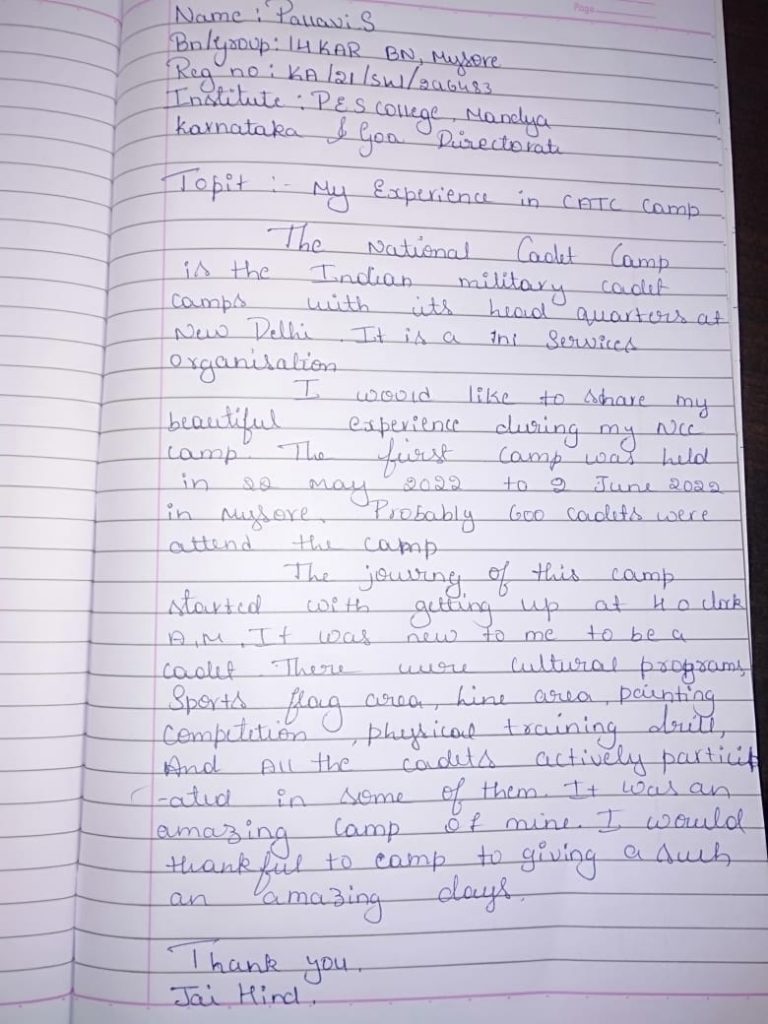 Page
Name : Pallavi S
Bn/Group : 14 KAR BN, Mysore
Reg no : KA/21/SW/206483
Institute : P.E.S College, Mandya
Karnataka & Goa Directorate
Topit :- My Experience in CATC Camp
The National Cadet Camp
is the Indian military cadet
camps with its head quarters at
New Delhi. It is a ini Services
organisation
I woould like to share my
beautiful experience during my NCC
camp. The first camp was held
in 22 may 2022 to 2 June 2022
in Mysore. Probably 600 cadets were
attend the camp
The jouring of this camp
started with getting up at 4 o clock
A.M, It was new to me to be a
cadet. There were cultural programs,
Sports flag area, line area, painting
Competetion, physical training drill,
And All the cadets actively particip
-ated in some of them. It was an
amazing camp of mine. I would
thankful to camp to giving a such
an amazing days.
Thank you.
Jai Hind.